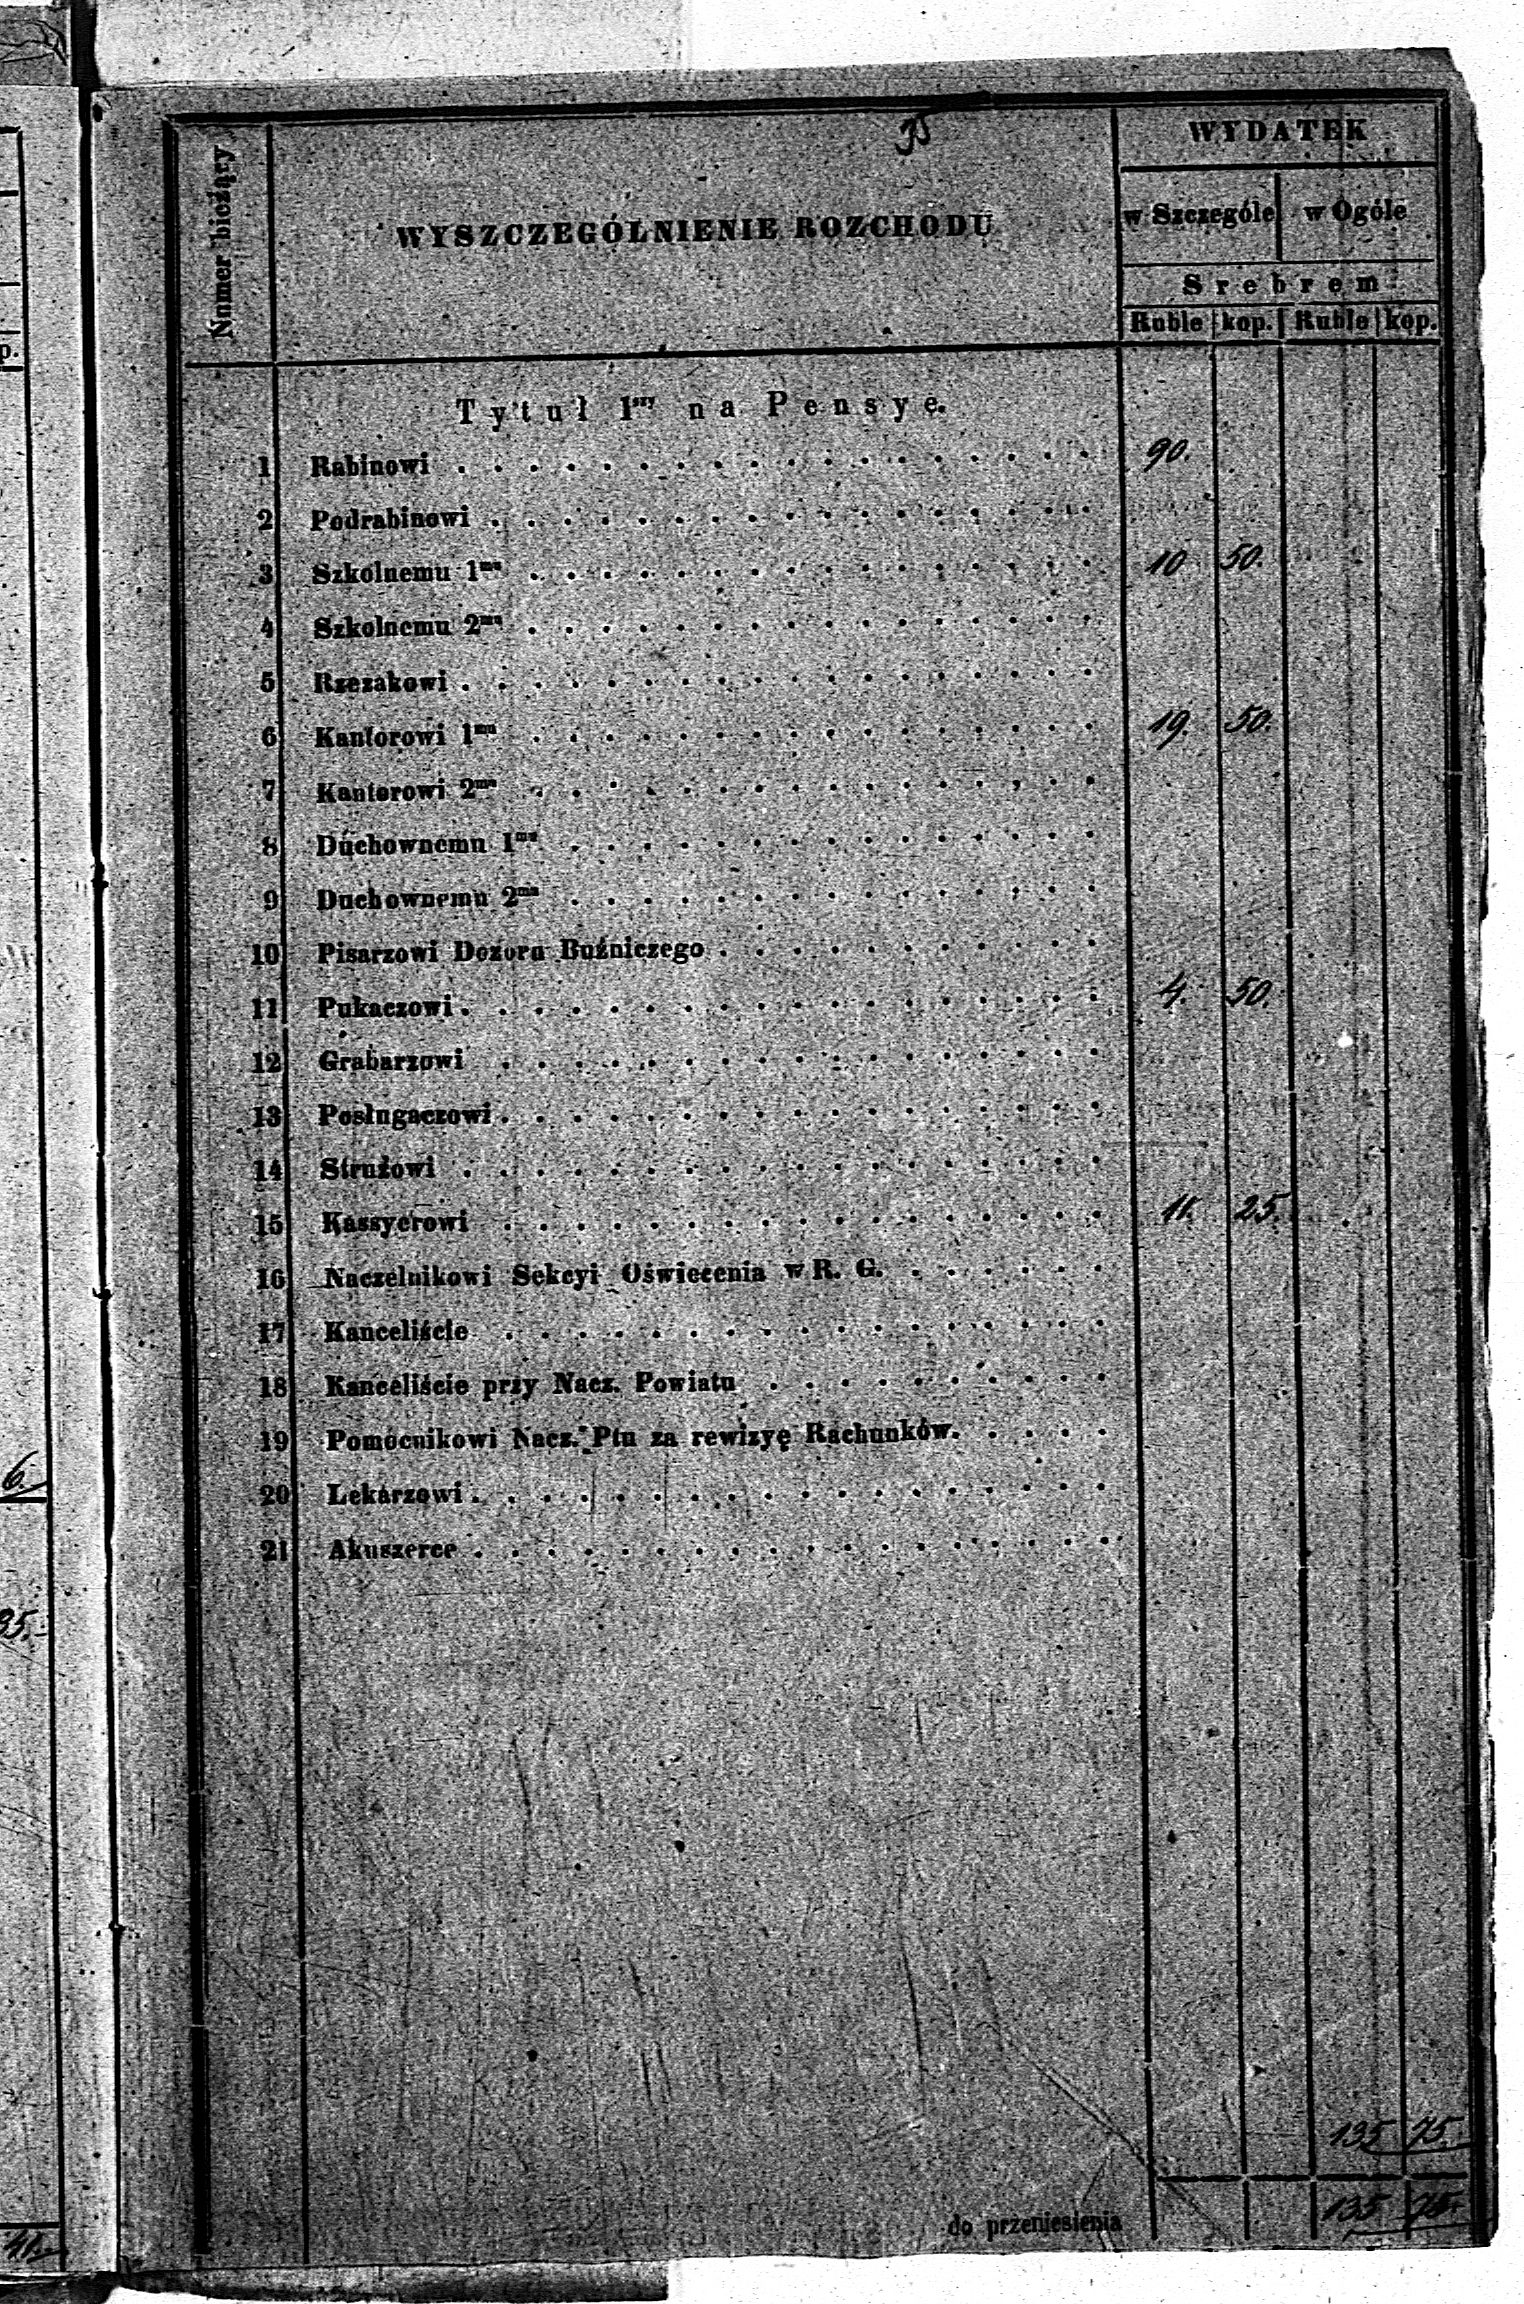 p.
6.
35.
41.
35
Numer bieżący
WYSZCZEGÓLNIENIE ROZCHODU
WYDATEK
w Szczególe w Ogóle
Srebrem
Ruble kop. Ruble kop.
Tytuł 1szy na Pensye.
1 Rabinowi . . . . . . . . . . . . . . . . . . 90.
2 Podrabinowi . . . . . . . . . . . . . . . . .
3 Szkolnemu 1mu . . . . . . . . . . . . . . . . 10 50.
4 Szkolnemu 2mu . . . . . . . . . . . . . . . .
5 Rzezakowi . . . . . . . . . . . . . . . . . .
6 Kantorowi 1mu . . . . . . . . . . . . . . . . 19. 50.
7 Kantorowi 2mu . . . . . . . . . . . . . . . .
8 Duchownemu 1mu . . . . . . . . . . . . . . .
9 Duchownemu 2mu . . . . . . . . . . . . . . .
10 Pisarzowi Dozoru Bużniczego . . . . . . . . . . .
11 Pukaczowi . . . . . . . . . . . . . . . . . . 4. 50.
12 Grabarzowi . . . . . . . . . . . . . . . . .
13 Posługaczowi . . . . . . . . . . . . . . . . .
14 Strużowi . . . . . . . . . . . . . . . . . .
15 Kassyerowi . . . . . . . . . . . . . . . . . 11. 25.
16 Naczelnikowi Sekcyi Oświecenia w R. G. . . . . . .
17 Kanceliście . . . . . . . . . . . . . . . . .
18 Kanceliście przy Nacz. Powiatu . . . . . . . . . .
19 Pomocnikowi Nacz. Ptu za rewizyę Rachunków. . . . .
20 Lekarzowi . . . . . . . . . . . . . . . . . .
21 Akuszerce . . . . . . . . . . . . . . . . . .
135 75.
do przeniesienia 135 75.